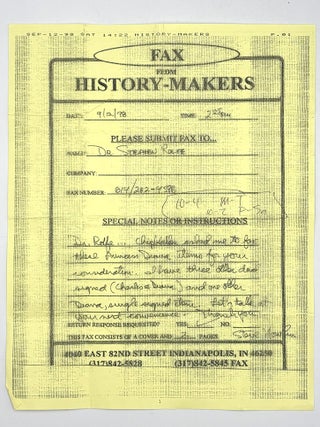 SEP-12-98 SAT 14:22 HISTORY-MAKERS P.01
FAX
FROM
HISTORY-MAKERS
DATE: 9/12/98 TIME: 2
PLEASE SUBMIT FAX TO...
NAME: Dr. Stephen Rolfe
COMPANY:
FAX NUMBER
10-4
SPECIAL NOTES OR INSTRUCTIONS
Dr. Rolfe ... asked me to fax
these Princess Diana items for your
consideration. I have three other dual
signed (Charles & Diana) and one other
Diana single signed item. Let's talk at
your next convenience. Thank you
RETURN RESPONSE REQUESTED? YES NO
THIS FAX CONSISTS OF A COVER AND PAGES
4040 EAST 82ND STREET INDIANAPOLIS, IN 46250
(317)842-5828 (317)842-5845 FAX